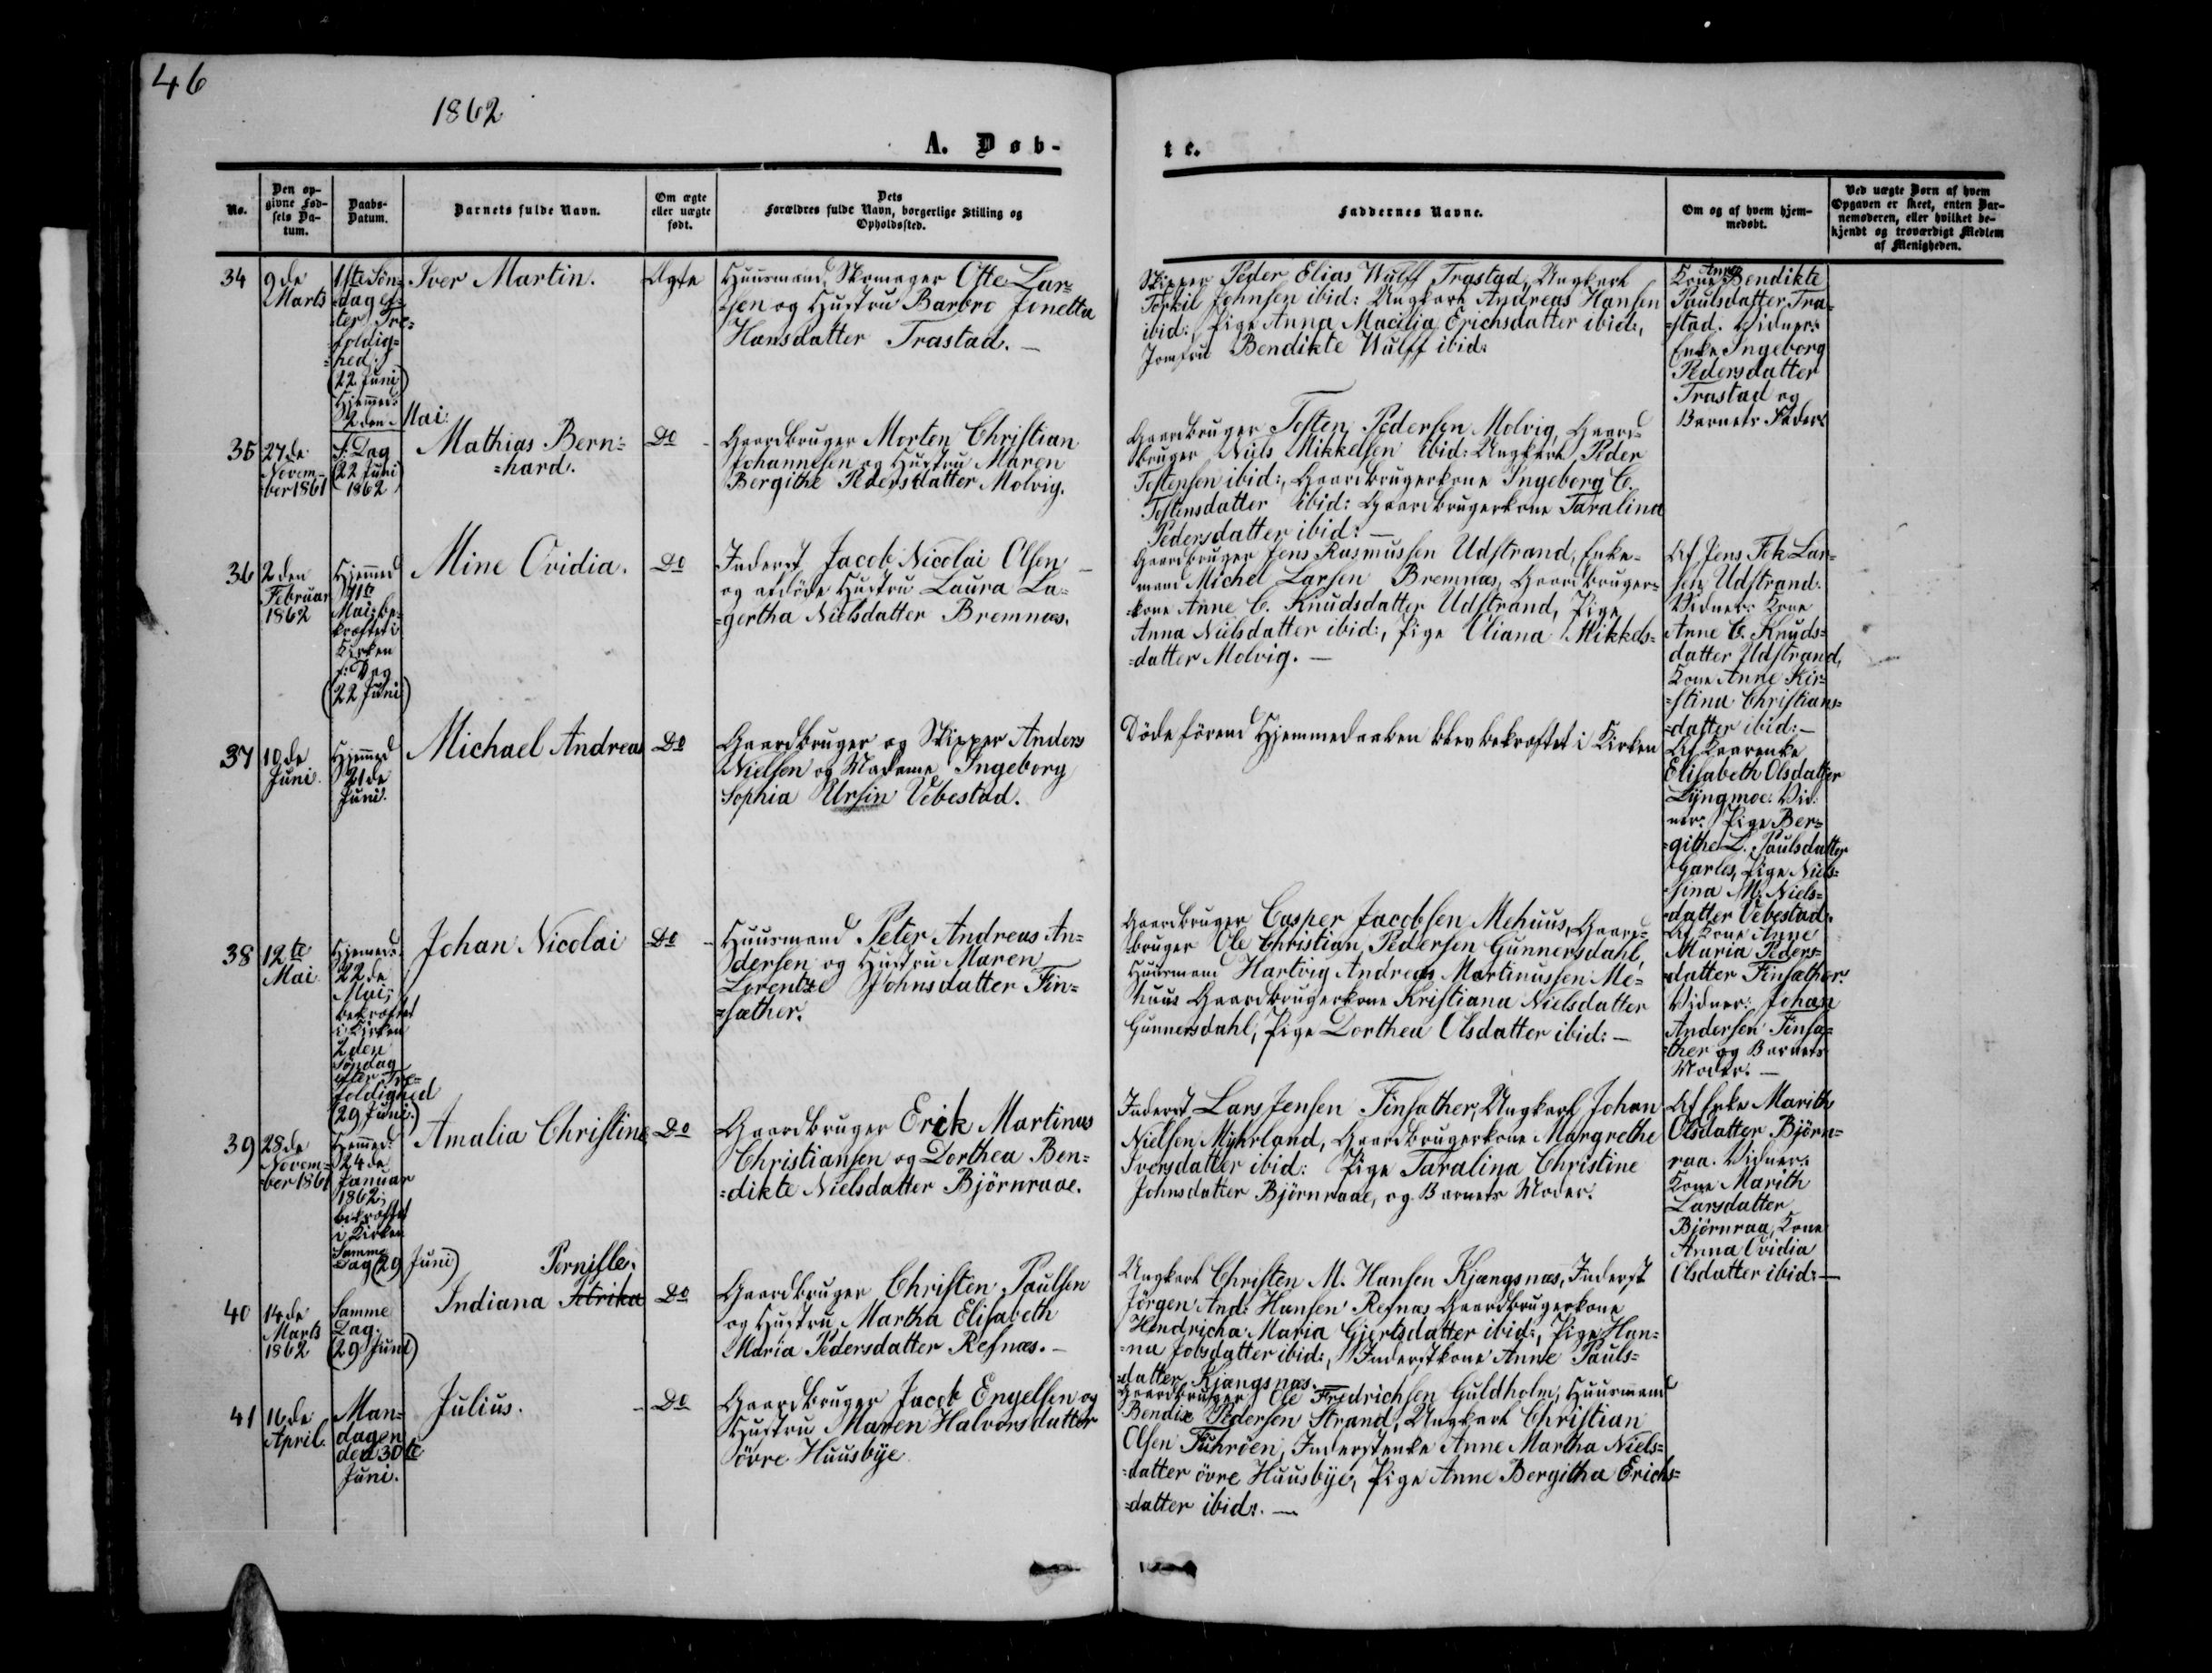 46
1862
A. Døb-
te.
No.
Den op-
givne Fød-
sels Da-
tum.
Daabs-
Datum.
Barnets fulde Navn.
Om ægte
eller uægte
født.
Dets
Forældres fulde Navn, borgerlige Stilling og
Opholdssted.
Faddernes Navne.
Om og af hvem hjem-
medøbt.
Ved uægte Børn af hvem
Opgaven er skeet, enten Bar-
nemoderen, eller hvilket be-
kjendt og troværdigt Medlem
af Menigheden.
34
9de
Marts
1ste Søn-
dag ef-
ter Tre-
foldig-
=hed.
(22 Juni)
Hjemmed:
2den Mai.
Iver Martin.
Ægte
Huusmand, Skomager Ole Lar-
sen og Hustru Barbro Jonetta
Hansdatter Trastad. —
Skipper Peder Elias Wulff Trastad, Ungkarl
Torkil Johnsen ibid: Ungkarl Andreas Hansen
ibid:, Pige Anna Macilia Erichsdatter ibid:,
Jomfru Bendikte Wulff ibid:
Kone Anne Bendikte
Paulsdatter, Tra-
=stad. Vidner:
Enke Ingeborg
Pedersdatter
Trastad og
Barnets Fader.
35
27de
Novem-
ber 1861
S: Dag
(22 Juni)
1862
Mathias Bern=
=hard.
Do
Gaardbruger Morten Christian
Johannesen og Hustru Maren
Bergithe Pedersdatter Molvig.
Gaardbruger Tosten Pedersen Molvig, Gaard-
bruger Niels Mikkelsen ibid: Ungkarl Peder
Tostensen ibid:, Gaardbrugerkone Ingeborg C.
Tostensdatter ibid: Gaardbrugerkone Taralina
Pedersdatter ibid: —
36
2den
Februar
1862
Hjemmed
11te
Mai; be-
kræftet i
Kirken
s: Dag
(22 Juni)
Mine Ovidia.
Do
Inderst Jacob Nicolai Olsen
og afdøde Hustru Laura La-
=gertha Nielsdatter Bremnæs.
Gaardbruger Jens Rasmussen Udstrand, Enke-
mand Michel Larsen Bremnæs, Gaardbruger-
kone Anne C. Knudsdatter Udstrand, Pige
Anna Nielsdatter ibid:, Pige Uliana Mikkels=
=datter Molvig. —
Af Jens Fok Lar-
sen Udstrand.
Vidner: Kone
Anne C. Knuds=
datter Udstrand,
Kone Anne Kir-
=stina Christians=
=datter ibid: —
37
10de
Juni
Hjemmed
21de
Juni.
Michael Andreas
Do
Gaardbruger og Skipper Anders
Nielsen og Madame Ingeborg
Sophia Ursin Vebestad.
Døde førend Hjemmedaaben blev bekræftet i Kirken
Af Kaarenke
Elisabeth Olsdatter
Lyngmoe. Vid-
ner: Pige Ber=
=githe L. Paulsdatter
Garles, Pige Niel=
=sina M. Niels=
datter Vebestad.
38
12te
Mai
Hjemmed:
22de
Mai;
bekræftet
i Kirken
2den
Søndag
efter Tre-
foldighed
(29 Juni)
Johan Nicolai
Do
Huusmand Peter Andreas An=
dersen og Hustru Maren
Lorentze Johnsdatter Fin=
=sæther.
Gaardbruger Casper Jacobsen Mehuus, Gaard-
bruger Ole Christian Pedersen Gunnersdahl,
Huusmand Hartvig Andreas Martinussen Me=
huus Gaardbrugerkone Kristiana Nielsdatter
Gunnersdahl, Pige Dorthea Olsdatter ibid: —
Af Kone Anne
Maria Peders=
datter Finsæther.
Vidner: Johan
Andersen Finsæ=
ther og Barnets
Moder. —
39
28de
Novem=
ber 1861
Hjemmed:
24de
Januar
1862;
bekræftet
i Kirken
Samme
Dag (29 Juni)
Amalia Christine
Do
Gaardbruger Erick Martinus
Christiansen og Dorthea Ben=
=dikte Nielsdatter Bjørnraae.
Inderst Lars Jensen Finsæther, Ungkarl Johan
Nielsen Myhrland, Gaardbrugerkone Margrethe
Iversdatter ibid: Pige Taralina Christine
Johnsdatter Bjørnraae, og Barnets Moder.
Af Enke Marith
Olsdatter Bjørn=
raa. Vidner:
Kone Marith
Larsdatter
Bjørnraa, Kone
Anna Ovidia
Olsdatter ibid: —
40
14de
Marts
1862
Samme
Dag.
(29 Juni)
Pernille.
Indiana Petrika
Do
Gaardbruger Christen Paulsen
og Hustru Martha Elisabeth
Maria Pedersdatter Refnæs. —
Ungkarl Christen M. Hansen Kjængsnæs, Inderst
Jørgen And: Hansen Refnæs Gaardbrugerkone
Hendricha Maria Gjertsdatter ibid:, Pige Han=
=na Jobsdatter ibid:, Inderstkone Anne Pauls=
=datter Kjængsnæs. —
41
16de
April.
Man=
dagen
den 30te
Juni.
Julius.
Do
Gaardbruger Jacob Engelsen og
Hustru Maren Halvorsdatter
øvre Huusbye
Gaardbruger Ole Fredrichsen Guldholm, Huusmand
Bendix Pedersen Strand, Ungkarl Christian
Olsen Fuhrøen, Inderstenke Anne Martha Niels=
=datter øvre Huusbye, Pige Anne Bergitha Erichs=
=datter ibid:. —